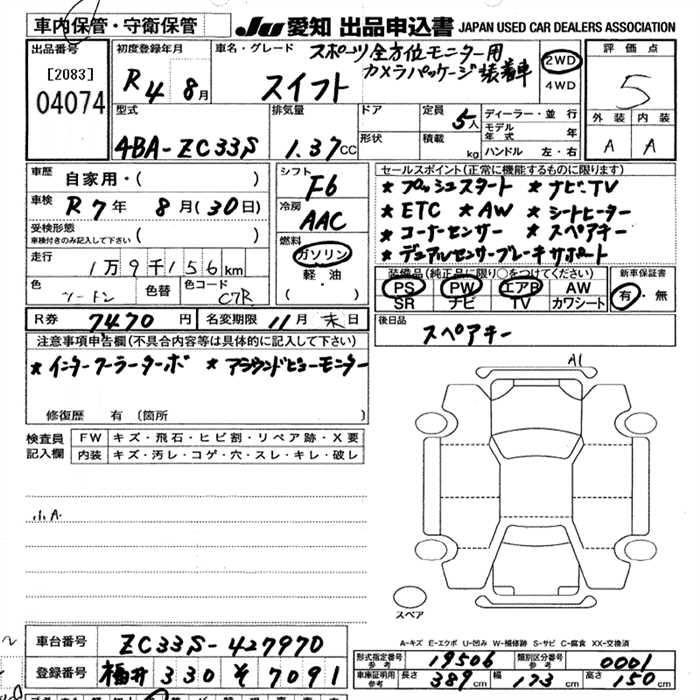 車内保管・守衛保管
JU 愛知 出品申込書 JAPAN USED CAR DEALERS ASSOCIATION
出品番号
[2083]
04074
初度登録年月
R4 8月
車名・グレード
スポーツ 全方位モニター用
カメラパッケージ装着車
スイフト
2WD
4WD
評価点
5
外装 内装
A A
型式
4BA-ZC33S
排気量
1.37CC
ドア
形状
定員
5人
積載
kg
ディーラー・並行
モデル年式 年
ハンドル 左・右
車歴
自家用・( )
車検
R7年 8月(30日)
受検形態
車検付きのみ記入して下さい ( )
走行
1万9千156km
色
ツートン
色替
色コード
C7R
シフト
F6
冷房
AAC
燃料
ガソリン
・軽・油
( )
セールスポイント(正常に機能するものに限ります)
★プッシュスタート ★ナビTV
★ETC ★AW ★シートヒーター
★コーナーセンサー ★スペアキー
★デュアルセンサーブレーキサポート
装備品(純正品に限り○をつけてください)
PS PW エアB AW
SR ナビ TV カワシート
新車保証書
有・無
R券 7470円
名変期限 11月末日
後日品
スペアキー
注意事項申告欄(不具合内容等は具体的に記入して下さい)
★インタークーラーターボ ★アラウンドビューモニター
修復歴 有 〔箇所 〕
検査員記入欄
FW キズ・飛石・ヒビ割・リペア跡・X要
内装 キズ・汚レ・コゲ・穴・スレ・キレ・破レ
小A
A1
スペア
A-キズ E-エクボ U-凹み W-補修跡 S-サビ C-腐食 XX-交換済
車台番号 ZC33S-427970
登録番号 福井 330 そ 7091
形式指定番号 参考 19506
類別区分番号 参考 0001
車庫証明用 参考 長さ 389cm 幅 173cm 高さ 150cm